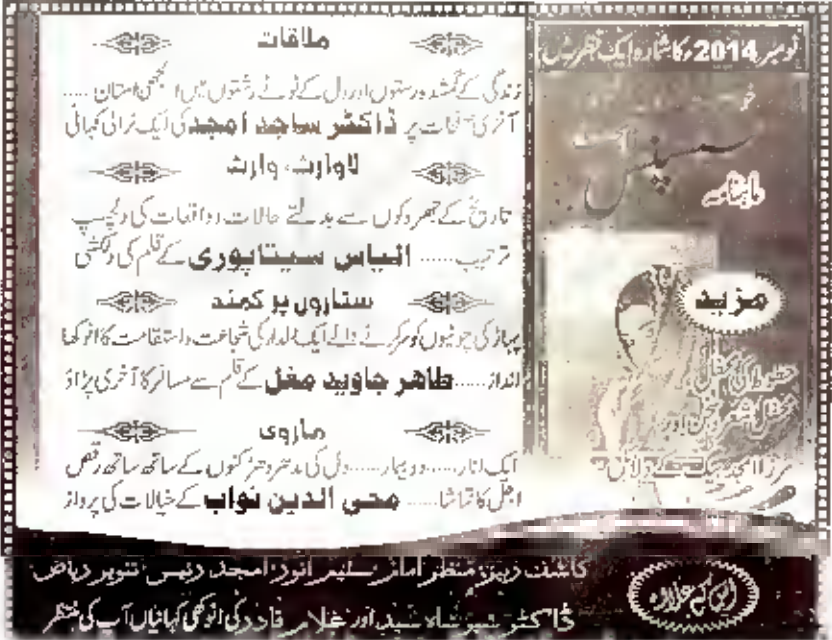 نومبر 2014ء کا شمارہ ایک نظر میں
سسپنس
ماہنامہ
مزید
ملاقات
زندگی کے گمشدہ رستوں اور دل کے ٹوٹے رشتوں میں الجھی داستان .....
آخری صفحات پر ڈاکٹر ساجد امجد کی ایک نرالی کہانی
لاوارث، وارث
تاریخ کے جھروکوں سے بدلتے حالات و واقعات کی دلچسپ
ترتیب ...... الیاس سیتاپوری کے قلم کی دلکشی
ستاروں پر کمند
پہاڑ کی چوٹیوں کو سر کرنے والے ایک دلدار کی شجاعت و استقامت کا انوکھا
انداز ...... طاہر جاوید مغل کے قلم سے مسافر کا آخری پڑاؤ
ماروی
ایک انار ...... دو بیمار ...... دلی کی مدھر دھڑکنوں کے ساتھ ساتھ رقص
اجل کا تماشا ...... محی الدین نواب کے خیالات کی پرواز
خطوط کی محفل
محفل شعر و سخن اور
مرزا امجد بیگ کے دلائل
اس کے علاوہ
کاشف زبیر، منظر امام، سلیم انور، امجد رئیس، تنویر ریاض،
ڈاکٹر شیر شاہ سید اور غلام قادر کی انوکھی کہانیاں آپ کی منتظر